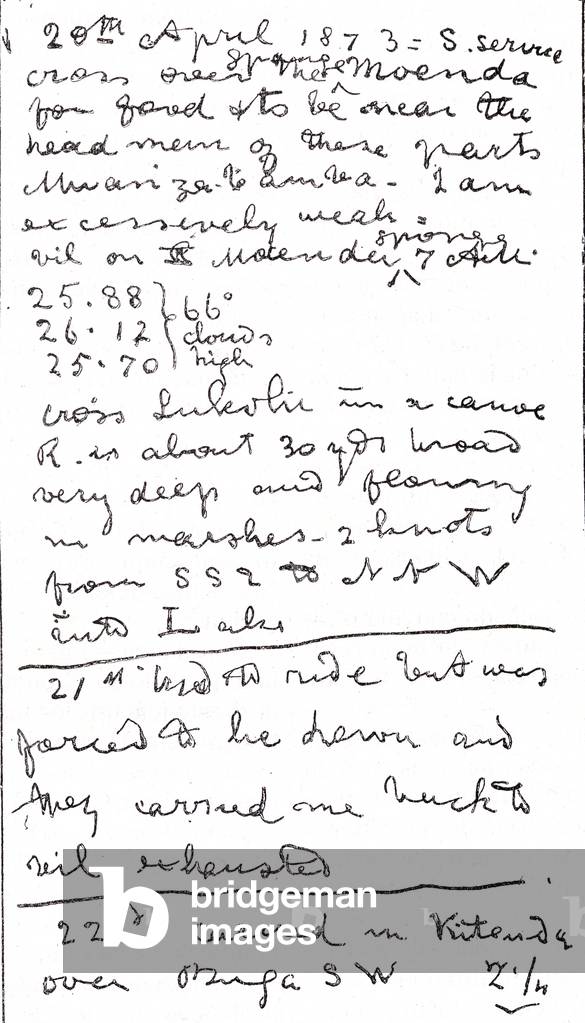 20th April 1873 = S. service
cross over the sponge Moenda
for food & to be near the
head men of these parts
Muanzambamba - I am
excessively weak =
vil on Moenda sponge 7 A.M.
25.88 } 66°
26.12 } clouds
25.70 } high
cross Lokulu in a canoe
R. is about 30 yds broad
very deep and flowing
in marshes - 2 knots
from SSE to NNW
into Lake
21st tried to ride but was
forced to lie down and
they carried me back to
vil exhausted
22d carried in Kitanda
over Buga SW 2 1/4
bridgeman
images